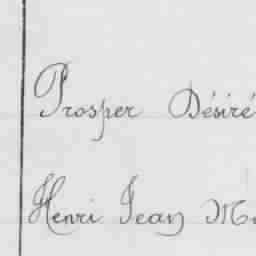 Prosper Désiré
Henri Jean